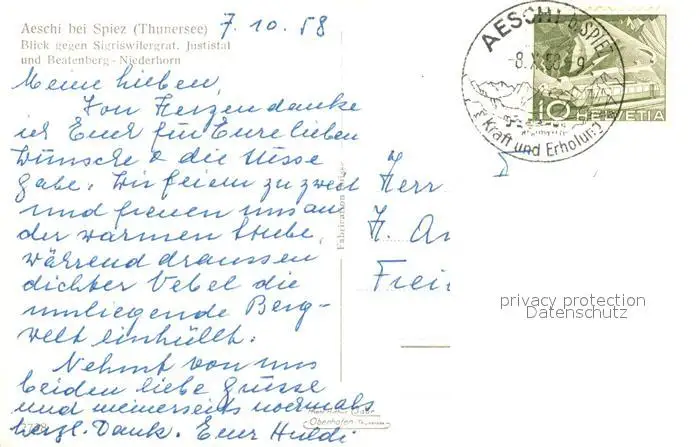 Aeschi bei Spiez (Thunersee)
Blick gegen Sigriswilergrat, Justistal
und Beatenberg - Niederhorn
7.10.58
Meine Lieben,
Von Herzen danke
ich Euch für Eure lieben
Wünsche & die süsse
Gabe. Wir feiern zu zweit
und freuen uns an
der warmen Stube,
während draussen
dichter Nebel die
umliegende Berg-
welt einhüllt.
Nehmt von uns
beiden liebe Grüsse
und meinerseits nochmals
herzl. Dank. Eure Huldi
Fabrication
Oberhofen
AESCHI b. SPIEZ
-8.X.58-9
Kraft und Erholung
10 HELVETIA
Herr
privacy protection
Datenschutz